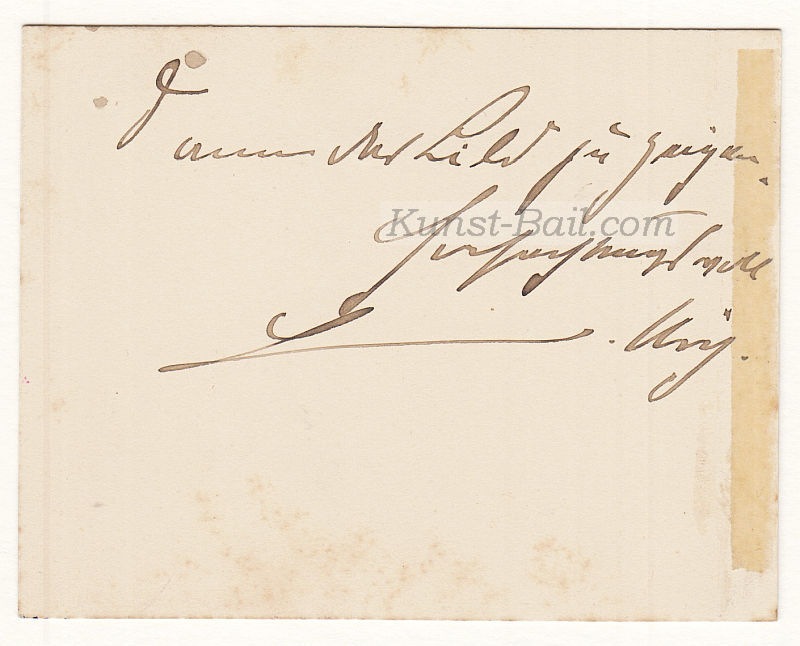 das Bild zu zeigen.
Kunst-Bail.com
Hochachtungsvoll
L. Ury.